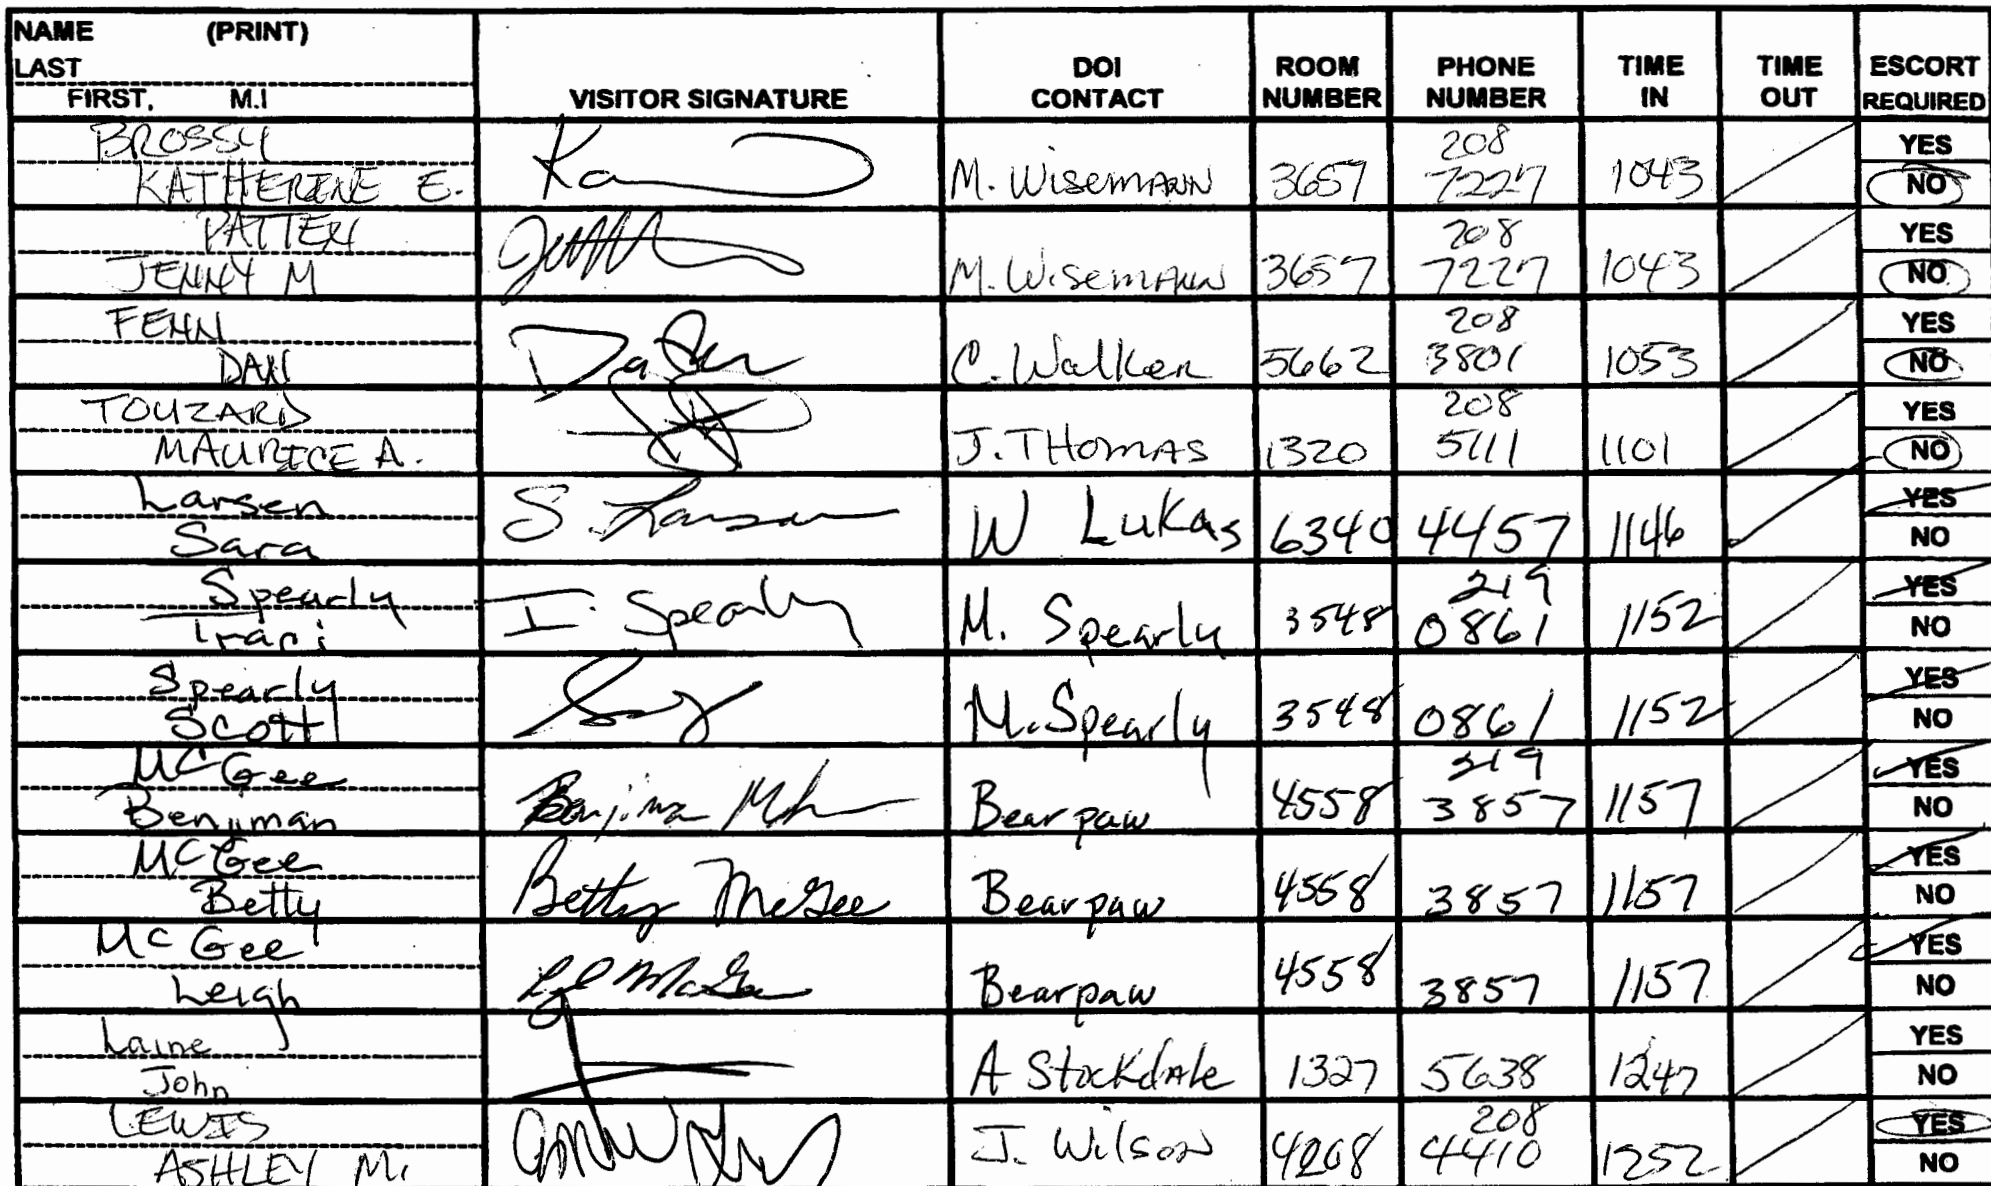 NAME (PRINT)
LAST
FIRST, M.I
VISITOR SIGNATURE
DOI CONTACT
ROOM NUMBER
PHONE NUMBER
TIME IN
TIME OUT
ESCORT REQUIRED
BROSSY
KATHERINE E.
M. WISEMANN 3657 208 7227 1043 YES NO
PATTEN
JENNY M
M. WISEMANN 3657 208 7227 1043 YES NO
FENN
DAN
C. Walker 5662 208 3801 1053 YES NO
TOUZARD
MAURICE A.
J. THOMAS 1320 208 5111 1101 YES NO
Larsen
Sara
S. Larsen W Lukas 6340 4457 1146 YES NO
Spearly
Irani
I. Spearly M. Spearly 3548 219 0861 1152 YES NO
Spearly
Scott
M. Spearly 3548 0861 1152 YES NO
McGee
Benjiman
Bearpaw 4558 219 3857 1157 YES NO
McGee
Betty
Betty McGee Bearpaw 4558 3857 1157 YES NO
McGee
Leigh
Bearpaw 4558 3857 1157 YES NO
Laine
John
A Stockdale 1327 5638 1247 YES NO
LEWIS
ASHLEY M.
J. Wilson 4208 208 4410 1252 YES NO